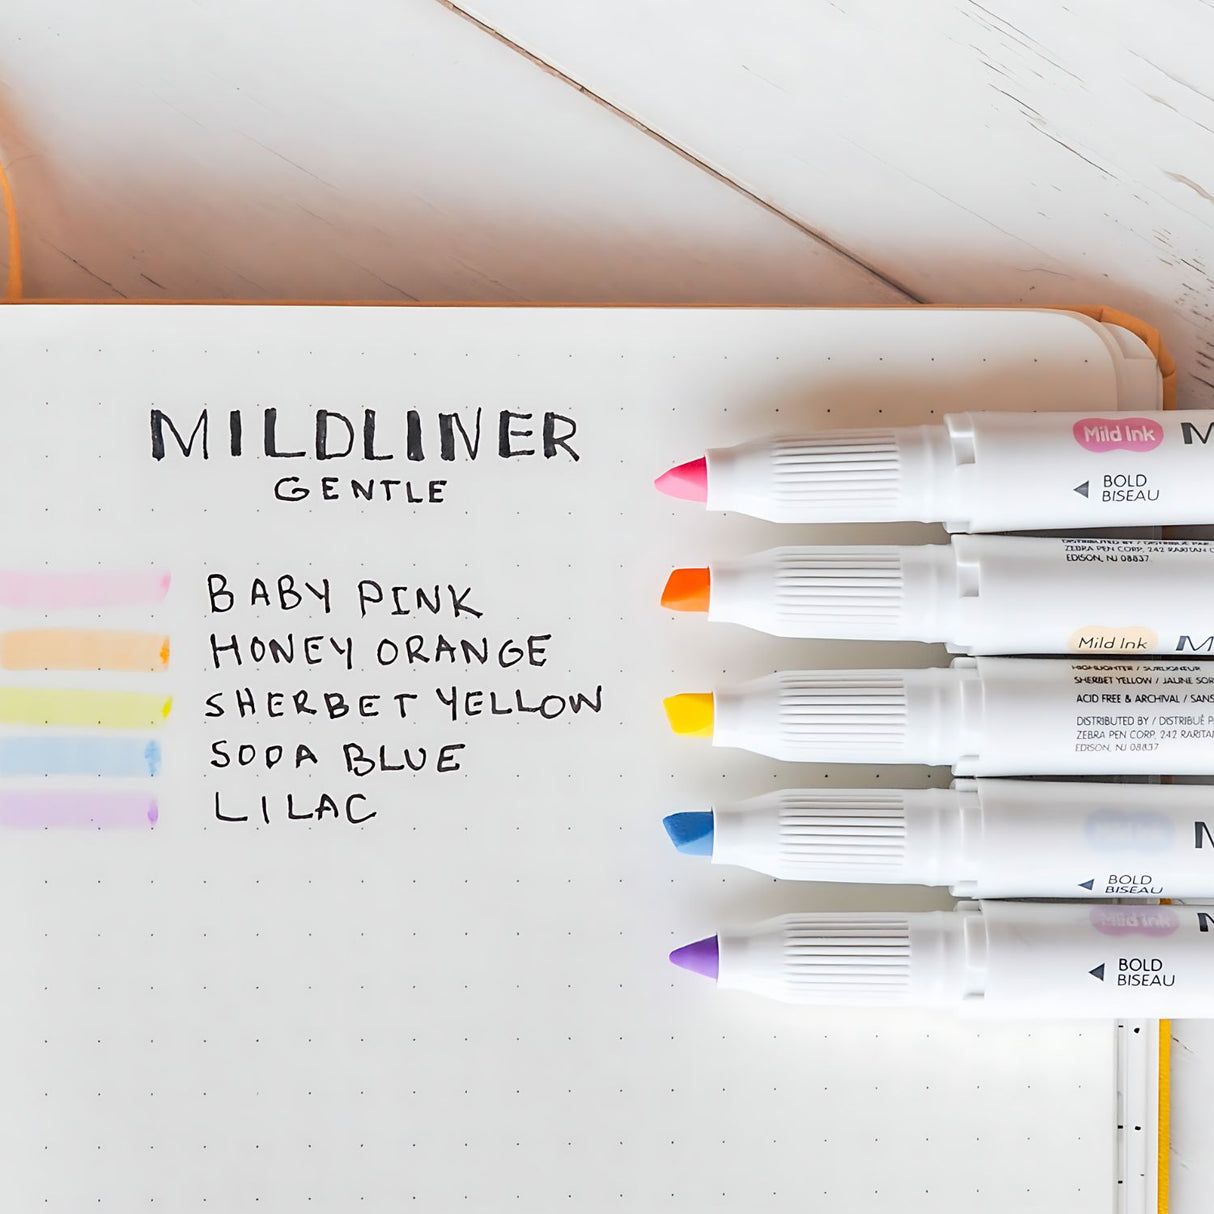 MILDLINER
GENTLE
BABY PINK
HONEY ORANGE
SHERBET YELLOW
SODA BLUE
LILAC
Mild Ink M
BOLD
BISEAU
DISTRIBUTED BY / DISTRIBUÉ PAR
ZEBRA PEN CORP. 242 RARITAN C
EDISON, NJ 08837
Mild Ink M
HIGHLIGHTER / SURLIGNEUR
SHERBET YELLOW / JAUNE SOR
ACID FREE & ARCHIVAL / SANS
DISTRIBUTED BY / DISTRIBUÉ P
ZEBRA PEN CORP. 242 RARITAN
EDISON, NJ 08837
M
BOLD
BISEAU
Mild Ink M
BOLD
BISEAU